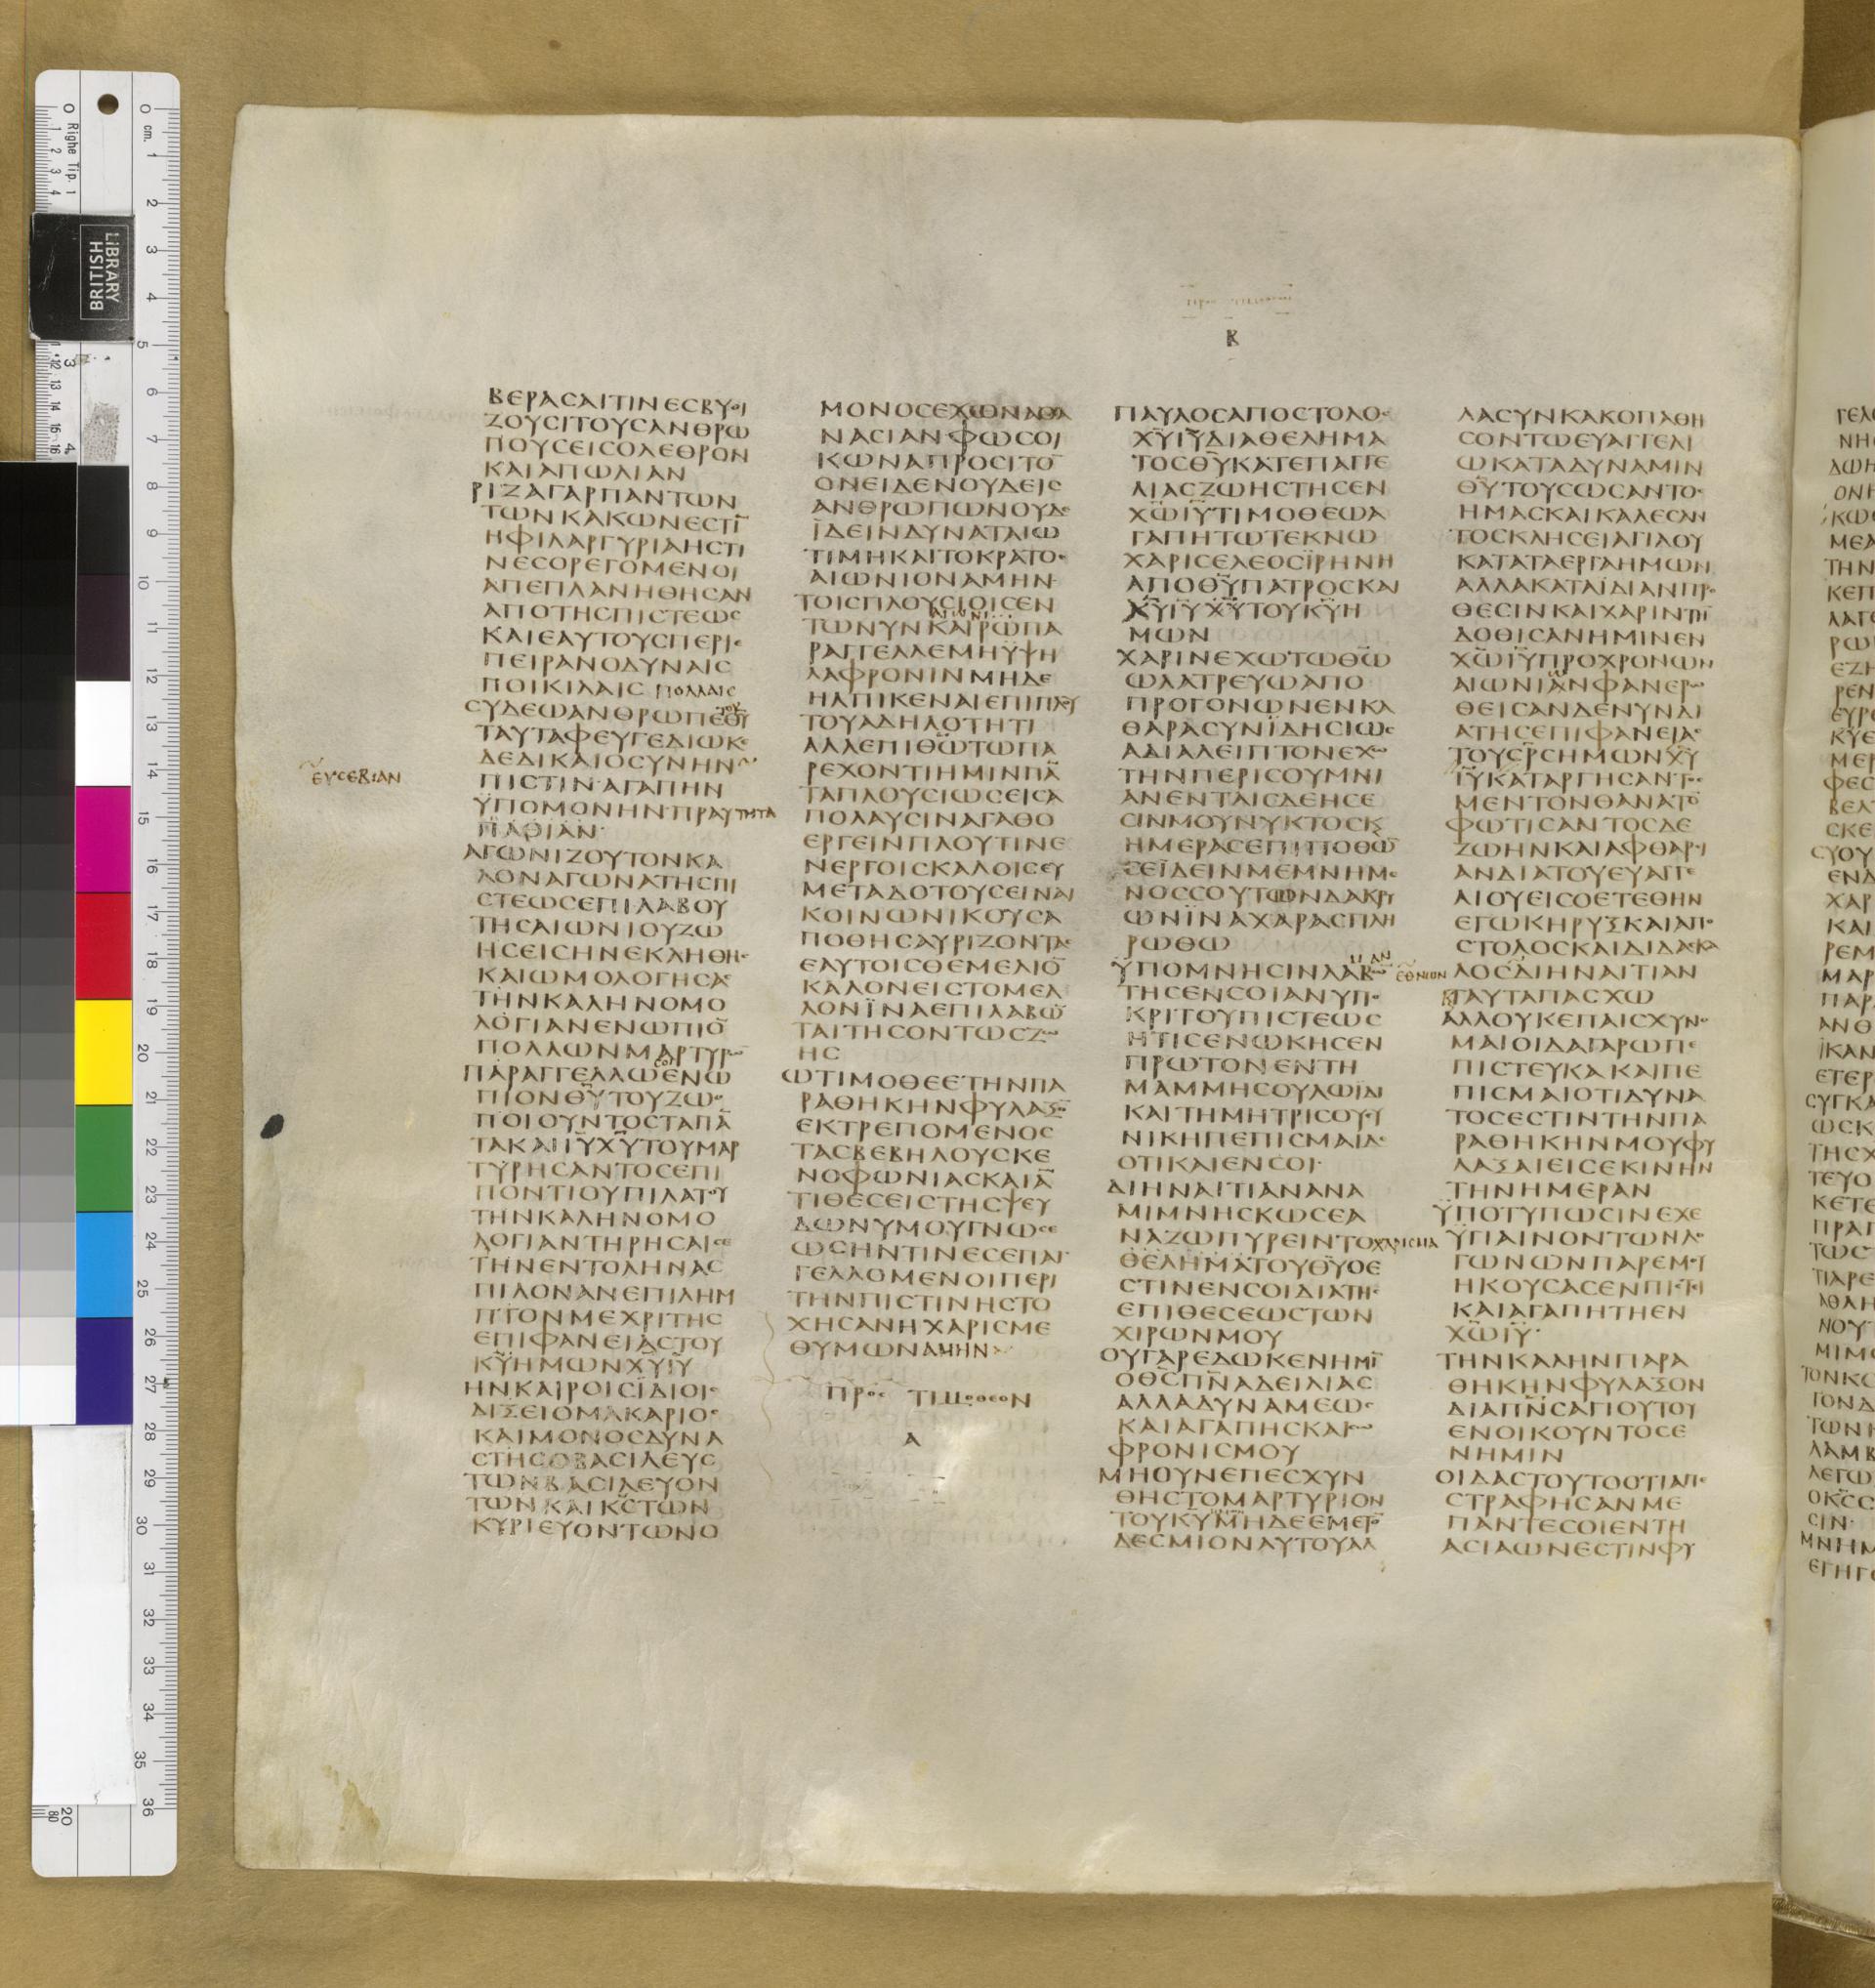 ΒΕΡΑCΑΙΤΙΝΕCΒΥΘΙ
ΖΟΥCΙΤΟΥCΑΝΘΡΩ
ΠΟΥCΕΙCΟΛΕΘΡΟΝ
ΚΑΙΑΠΩΛΙΑΝ
ΡΙΖΑΓΑΡΠΑΝΤΩΝ
ΤΩΝΚΑΚΩΝΕCΤΙ̅
ΗΦΙΛΑΡΓΥΡΙΑΗCΤΙ
ΝΕCΟΡΕΓΟΜΕΝΟΙ
ΑΠΕΠΛΑΝΗΘΗCΑΝ
ΑΠΟΤΗCΠΙCΤΕΩC
ΚΑΙΕΑΥΤΟΥCΠΕΡΙΕ
ΠΕΙΡΑΝΟΔΥΝΑΙC
ΠΟΙΚΙΛΑΙC ΠΟΛΛΑΙC
CΥΔΕΩΑΝΘΡΩΠΕΘΥ̅
ΤΟΥ
ΤΑΥΤΑΦΕΥΓΕΔΙΩΚΕ
ΔΕΔΙΚΑΙΟCΥΝΗΝ
ΕΥCΕΒΙΑΝ
ΠΙCΤΙΝ·ΑΓΑΠΗΝ
ΫΠΟΜΟΝΗΝ·ΠΡΑΫΤΗΤΑ
ΠΑΘΙΑΝ·
ΑΓΩΝΙΖΟΥΤΟΝΚΑ
ΛΟΝΑΓΩΝΑΤΗCΠΙ
CΤΕΩCΕΠΙΛΑΒΟΥ
ΤΗCΑΙΩΝΙΟΥΖΩ
ΗCΕΙCΗΝΕΚΛΗΘΗC
ΚΑΙΩΜΟΛΟΓΗCΑC
ΤΗΝΚΑΛΗΝΟΜΟ
ΛΟΓΙΑΝΕΝΩΠΙΟ̅
ΠΟΛΛΩΝΜΑΡΤΥΡΩ
CΟΙ
ΠΑΡΑΓΓΕΛΛΩΕΝΩ
ΠΙΟΝΘΥ̅ΤΟΥΖΩΟ
ΠΟΙΟΥΝΤΟCΤΑΠΑ̅
ΤΑΚΑΙΙΥ̅ΧΥ̅ΤΟΥΜΑΡ
ΤΥΡΗCΑΝΤΟCΕΠΙ
ΠΟΝΤΙΟΥΠΙΛΑΤΟΥ
ΤΗΝΚΑΛΗΝΟΜΟ
ΛΟΓΙΑΝΤΗΡΗCΑΙCΕ
ΤΗΝΕΝΤΟΛΗΝΑC
ΠΙΛΟΝΑΝΕΠΙΛΗΜ
ΠΤΟΝΜΕΧΡΙΤΗC
ΕΠΙΦΑΝΕΙΑCΤΟΥ
ΚΥ̅ΗΜΩΝΧΥ̅ΙΥ̅
ΗΝΚΑΙΡΟΙCΪΔΙΟΙC
ΔΙΞΕΙΟΜΑΚΑΡΙΟC
ΚΑΙΜΟΝΟCΔΥΝΑ
CΤΗCΟΒΑCΙΛΕΥC
ΤΩΝΒΑCΙΛΕΥΟΝ
ΤΩΝΚΑΙΚC̅ΤΩΝ
ΚΥΡΙΕΥΟΝΤΩΝΟ
ΜΟΝΟCΕΧΩΝΑΘΑ
ΝΑCΙΑΝΦΩCΟΙ
ΚΩΝΑΠΡΟCΙΤΟ̅
ΟΝΕΙΔΕΝΟΥΔΕΙC
ΑΝΘΡΩΠΩΝΟΥΔΕ
ΪΔΕΙΝΔΥΝΑΤΑΙΩ
ΤΙΜΗΚΑΙΤΟΚΡΑΤΟC
ΑΙΩΝΙΟΝΑΜΗΝ
ΤΟΙCΠΛΟΥCΙΟΙCΕΝ
ΑΙΩΝΙ
ΤΩΝΥΝΚΑΙΡΩΠΑ
ΡΑΓΓΕΛΛΕΜΗΥΨΗ
ΛΑΦΡΟΝΙΝΜΗΔΕ
ΗΛΠΙΚΕΝΑΙΕΠΙΠΛΟΥ
ΤΟΥΑΔΗΛΟΤΗΤΙ
ΑΛΛΕΠΙΘΩ̅ΤΩΠΑ
ΡΕΧΟΝΤΙΗΜΙΝΠΑ̅
ΤΑΠΛΟΥCΙΩCΕΙCΑ
ΠΟΛΑΥCΙΝΑΓΑΘΟ
ΕΡΓΕΙΝΠΛΟΥΤΙΝΕ
ΝΕΡΓΟΙCΚΑΛΟΙCΕΥ
ΜΕΤΑΔΟΤΟΥCΕΙΝΑΙ
ΚΟΙΝΩΝΙΚΟΥCΑ
ΠΟΘΗCΑΥΡΙΖΟΝΤΑC
ΕΑΥΤΟΙCΘΕΜΕΛΙΟ̅
ΚΑΛΟΝΕΙCΤΟΜΕΛ
ΛΟΝΪΝΑΕΠΙΛΑΒΩ̅
ΤΑΙΤΗCΟΝΤΩCΖΩ
ΗC
ΩΤΙΜΟΘΕΕΤΗΝΠΑ
ΡΑΘΗΚΗΝΦΥΛΑΞΟ
ΕΚΤΡΕΠΟΜΕΝΟC
ΤΑCΒΕΒΗΛΟΥCΚΕ
ΝΟΦΩΝΙΑCΚΑΙΑ̅
ΤΙΘΕCΕΙCΤΗCΨΕΥ
ΔΩΝΥΜΟΥΓΝΩCΕ
ΩCΗΝΤΙΝΕCΕΠΑΓ
ΓΕΛΛΟΜΕΝΟΙΠΕΡΙ
ΤΗΝΠΙCΤΙΝΗCΤΟ
ΧΗCΑΝΗΧΑΡΙCΜΕ
ΘΥΜΩΝΑΜΗΝ
ΠΡΟC ΤΙΜΟΘΕΟΝ
Α
Β
ΠΑΥΛΟCΑΠΟCΤΟΛΟC
ΧΥ̅ΙΥ̅ΔΙΑΘΕΛΗΜΑ
ΤΟCΘΥ̅ΚΑΤΕΠΑΓΓΕ
ΛΙΑCΖΩΗCΤΗCΕΝ
ΧΩ̅ΙΥ̅ΤΙΜΟΘΕΩΑ
ΓΑΠΗΤΩΤΕΚΝΩ
ΧΑΡΙCΕΛΕΟCΪΡΗΝΗ
ΑΠΟΘΥ̅ΠΑΤΡΟCΚΑΙ
ΧΥ̅ΙΥ̅ΧΥ̅ΤΟΥΚΥ̅Η
ΜΩΝ
ΧΑΡΙΝΕΧΩΤΩΘΩ̅
ΩΛΑΤΡΕΥΩΑΠΟ
ΠΡΟΓΟΝΩΝΕΝΚΑ
ΘΑΡΑCΥΝΪΔΗCΙΩC
ΑΔΙΑΛΕΙΠΤΟΝΕΧΩ
ΤΗΝΠΕΡΙCΟΥΜΝΙ
ΑΝΕΝΤΑΙCΔΕΗCΕ
CΙΝΜΟΥΝΥΚΤΟCΚϚ
ΗΜΕΡΑCΕΠΙΠΟΘΩ̅
CΕΪΔΕΙΝΜΕΜΝΗΜΕ
ΝΟCCΟΥΤΩΝΔΑΚΡΥ
ΩΝΪΝΑΧΑΡΑCΠΛΗ
ΡΩΘΩ
ΫΠΟΜΝΗCΙΝΛΑΒΩ
ΤΗCΕΝCΟΙΑΝΥΠΟ
ΚΡΙΤΟΥΠΙCΤΕΩC
ΗΤΙCΕΝΩΚΗCΕΝ
ΠΡΩΤΟΝΕΝΤΗ
ΜΑΜΜΗCΟΥΛΩΪΔΙ
ΚΑΙΤΗΜΗΤΡΙCΟΥΕΥ
ΝΙΚΗΠΕΠΙCΜΑΙΔΕ
ΟΤΙΚΑΙΕΝCΟΙ·
ΔΙΗΝΑΙΤΙΑΝΑΝΑ
ΜΙΜΝΗCΚΩCΕΑ
ΝΑΖΩΠΥΡΕΙΝΤΟΧΑΡΙCΜΑ
ΘΕΛΗΜΑΤΟΥΘΥ̅ΟΕ
CΤΙΝΕΝCΟΙΔΙΑΤΗC
ΕΠΙΘΕCΕΩCΤΩΝ
ΧΙΡΩΝΜΟΥ
ΟΥΓΑΡΕΔΩΚΕΝΗΜΙ̅
ΟΘC̅ΠΝ̅ΑΔΕΙΛΙΑC
ΑΛΛΑΔΥΝΑΜΕΩC
ΚΑΙΑΓΑΠΗCΚΑΙCΩ
ΦΡΟΝΙCΜΟΥ
ΜΗΟΥΝΕΠΕCΧΥΝ
ΘΗCΤΟΜΑΡΤΥΡΙΟΝ
ΤΟΥΚΥ̅ΜΗΔΕΕΜΕΤΟ̅
ΔΕCΜΙΟΝΑΥΤΟΥΑΛ
ΛΑCΥΝΚΑΚΟΠΑΘΗ
CΟΝΤΩΕΥΑΓΓΕΛΙ
ΩΚΑΤΑΔΥΝΑΜΙΝ
ΘΥ̅ΤΟΥCΩCΑΝΤΟC
ΗΜΑCΚΑΙΚΑΛΕCΑΝ
ΤΟCΚΛΗCΕΙΑΓΙΑΟΥ
ΚΑΤΑΤΑΕΡΓΑΗΜΩΝ
ΑΛΛΑΚΑΤΑΪΔΙΑΝΠΡΟ
ΘΕCΙΝΚΑΙΧΑΡΙΝΤΗ̅
ΔΟΘΙCΑΝΗΜΙΝΕΝ
ΧΩ̅ΙΥ̅ΠΡΟΧΡΟΝΩΝ
ΑΙΩΝΙΑΝΦΑΝΕΡΩ
ΘΕΙCΑΝΔΕΝΥΝΔΙ
ΑΤΗCΕΠΙΦΑΝΕΙΑC
ΤΟΥCΡ̅CΗΜΩΝΧΥ̅
ΙΥ̅ΚΑΤΑΡΓΗCΑΝΤΟC
ΜΕΝΤΟΝΘΑΝΑΤΟ̅
ΦΩΤΙCΑΝΤΟCΔΕ
ΖΩΗΝΚΑΙΑΦΘΑΡCΙ
ΑΝΔΙΑΤΟΥΕΥΑΓΓΕ
ΛΙΟΥΕΙCΟΕΤΕΘΗΝ
ΕΓΩΚΗΡΥΞΚΑΙΑΠΟ
CΤΟΛΟCΚΑΙΔΙΔΑCΚΑ
ΕΘΝΩΝ
ΛΟCΔΙΗΝΑΙΤΙΑΝ
ΚΤΑΥΤΑΠΑCΧΩ
ΑΛΛΟΥΚΕΠΑΙCΧΥΝΟ
ΜΑΙΟΙΔΑΓΑΡΩΠΕ
ΠΙCΤΕΥΚΑΚΑΙΠΕ
ΠΙCΜΑΙΟΤΙΔΥΝΑ
ΤΟCΕCΤΙΝΤΗΝΠΑ
ΡΑΘΗΚΗΝΜΟΥΦΥ
ΛΑΞΑΙΕΙCΕΚΙΝΗΝ
ΤΗΝΗΜΕΡΑΝ
ΫΠΟΤΥΠΩCΙΝΕΧΕ
ΫΓΙΑΙΝΟΝΤΩΝΛΟ
ΓΩΝΩΝΠΑΡΕΜΟΥ
ΗΚΟΥCΑCΕΝΠΙCΤΙ
ΚΑΙΑΓΑΠΗΤΗΕΝ
ΧΩ̅ΙΥ̅·
ΤΗΝΚΑΛΗΝΠΑΡΑ
ΘΗΚΗΝΦΥΛΑΞΟΝ
ΔΙΑΠΝ̅CΑΓΙΟΥΤΟΥ
ΕΝΟΙΚΟΥΝΤΟCΕ
ΝΗΜΙΝ
ΟΙΔΑCΤΟΥΤΟΟΤΙΑΠΕ
CΤΡΑΦΗCΑΝΜΕ
ΠΑΝΤΕCΟΙΕΝΤΗ
ΑCΙΑΩΝΕCΤΙΝΦΥ
BRITISH
LIBRARY